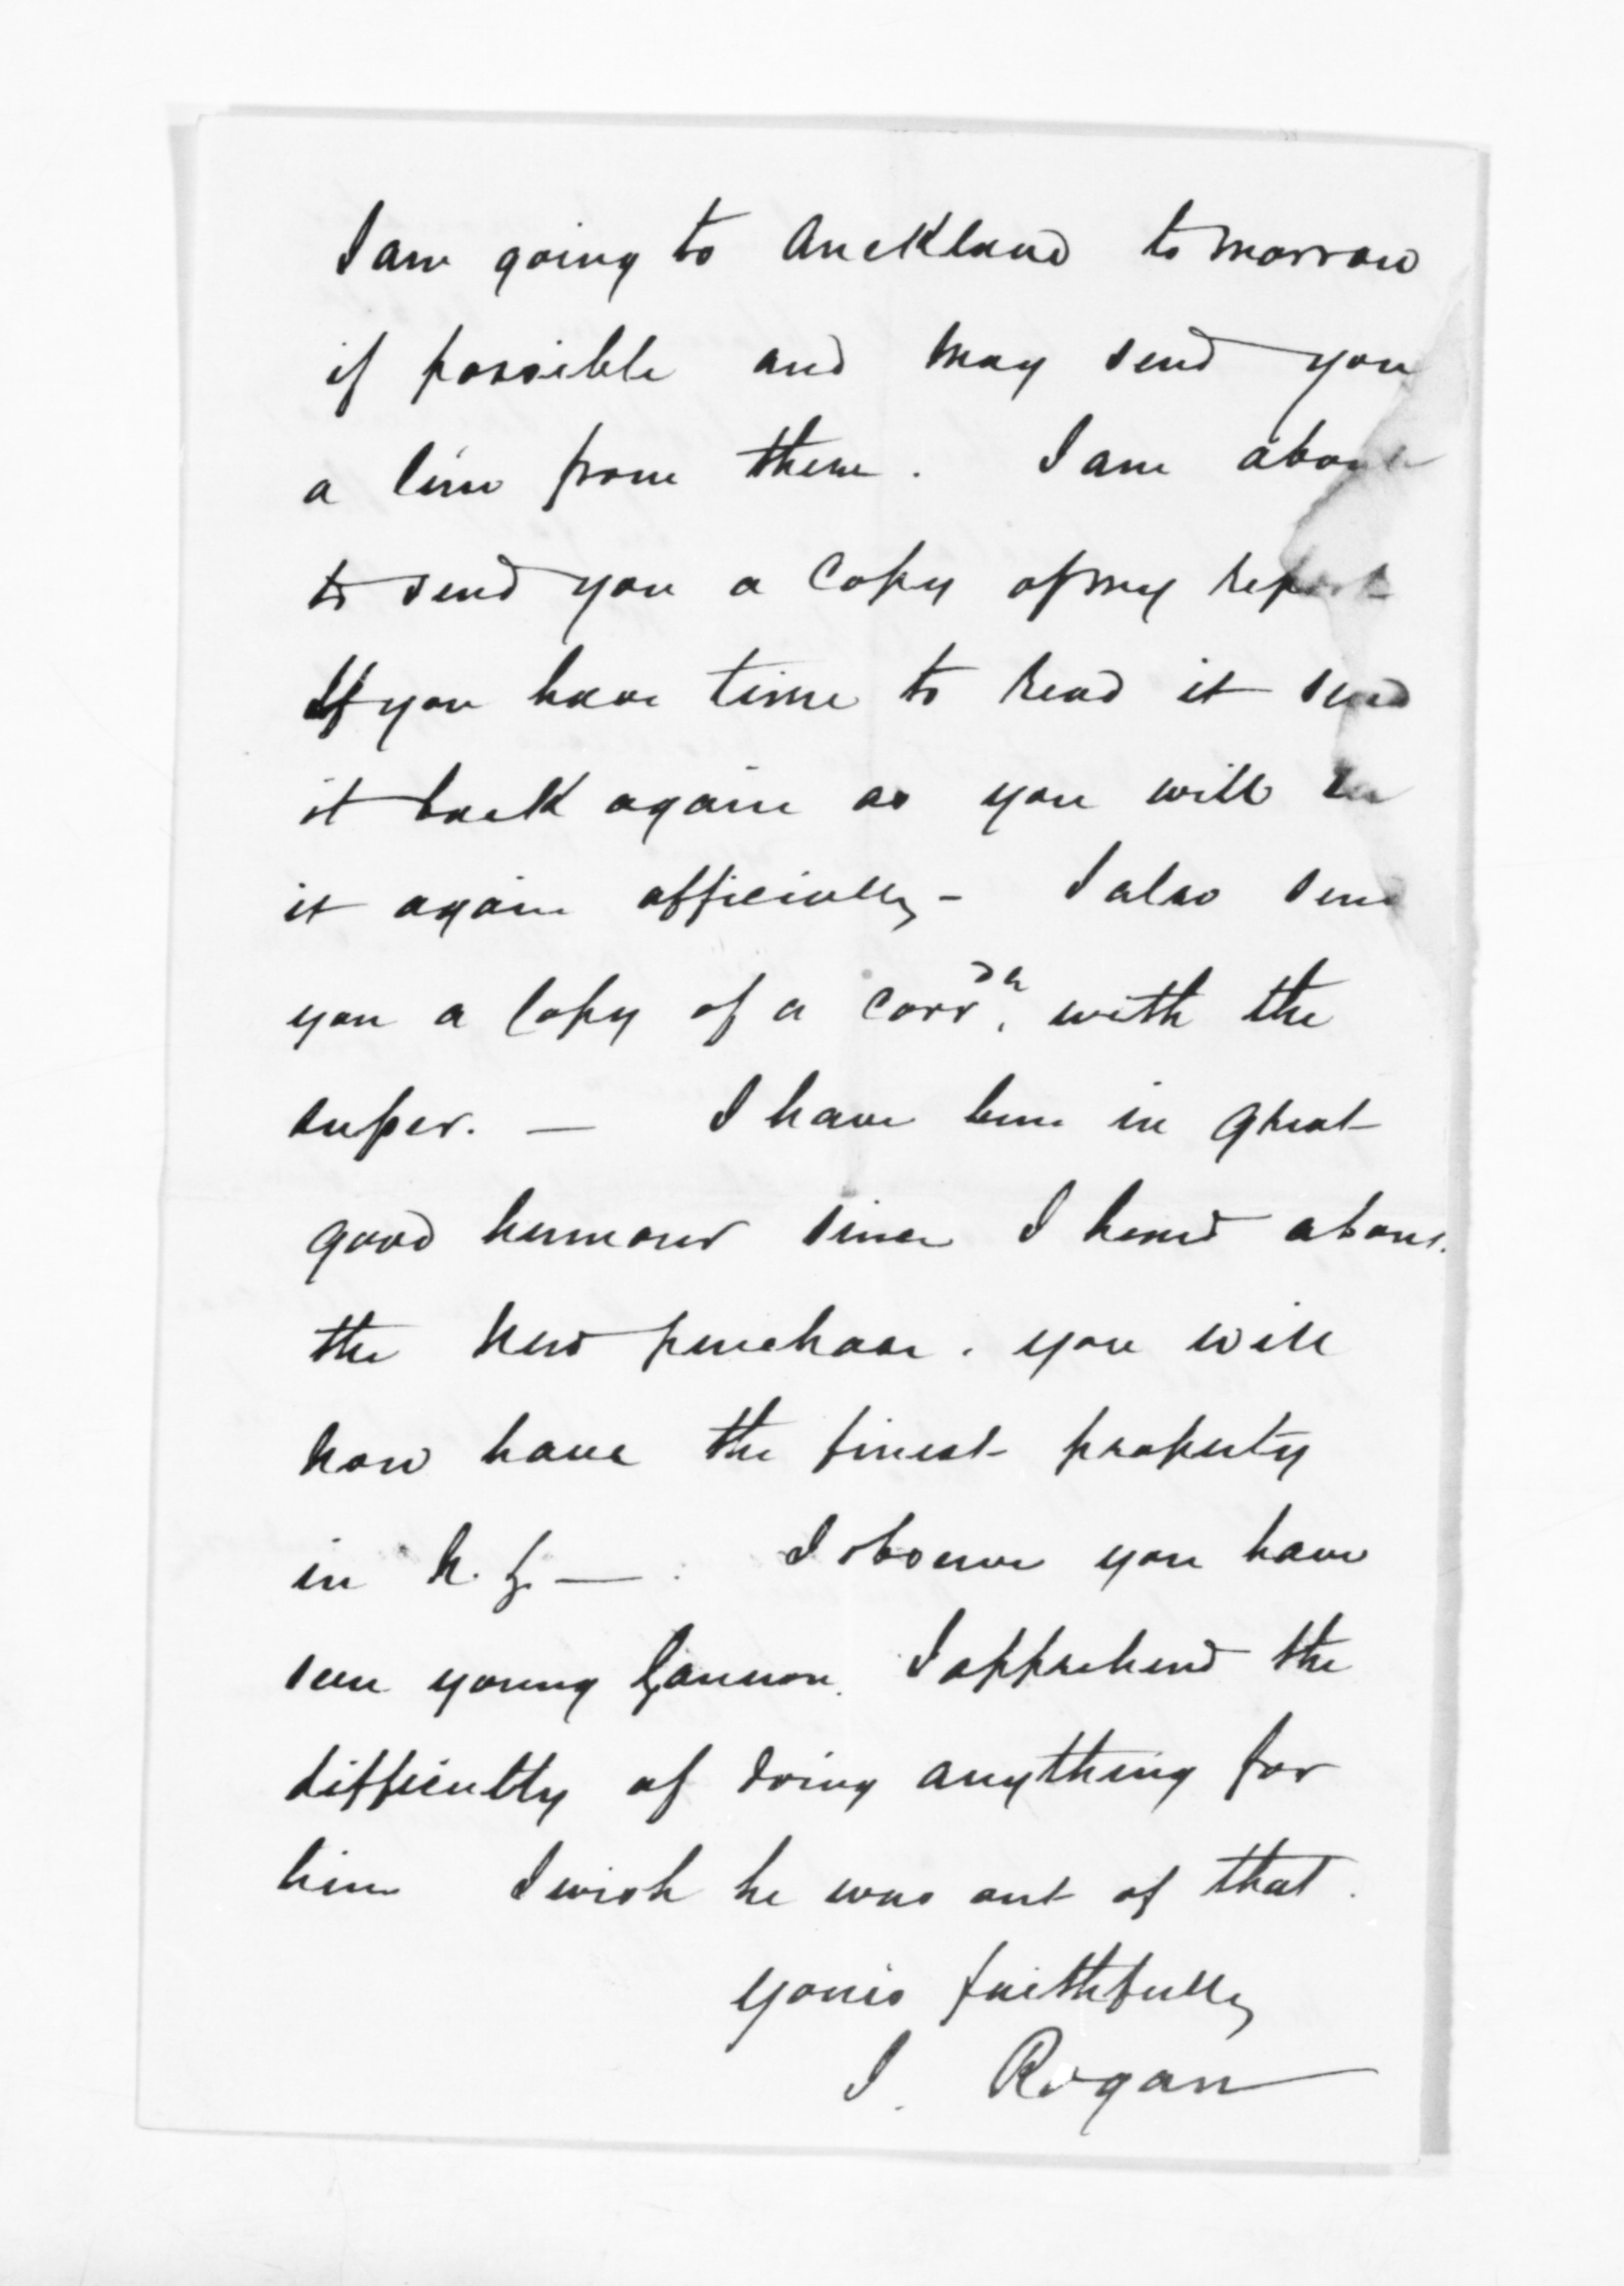 I am going to Auckland tomorrow
if possible and may send you
a line from there. I am about
to send you a Copy of my report
If you have time to read it send
it back again as you will see
it again officially - I also send
you a Copy of a Corr<sup>dce</sup>. with the
super. — I have been in great
good humour since I heard about
the new purchase. you will
now have the finest property
in N. Z. — I observe you have
seen young Gannon. I apprehend the
difficulty of doing anything for
him I wish he was out of that.
yours faithfully
J. Rogan